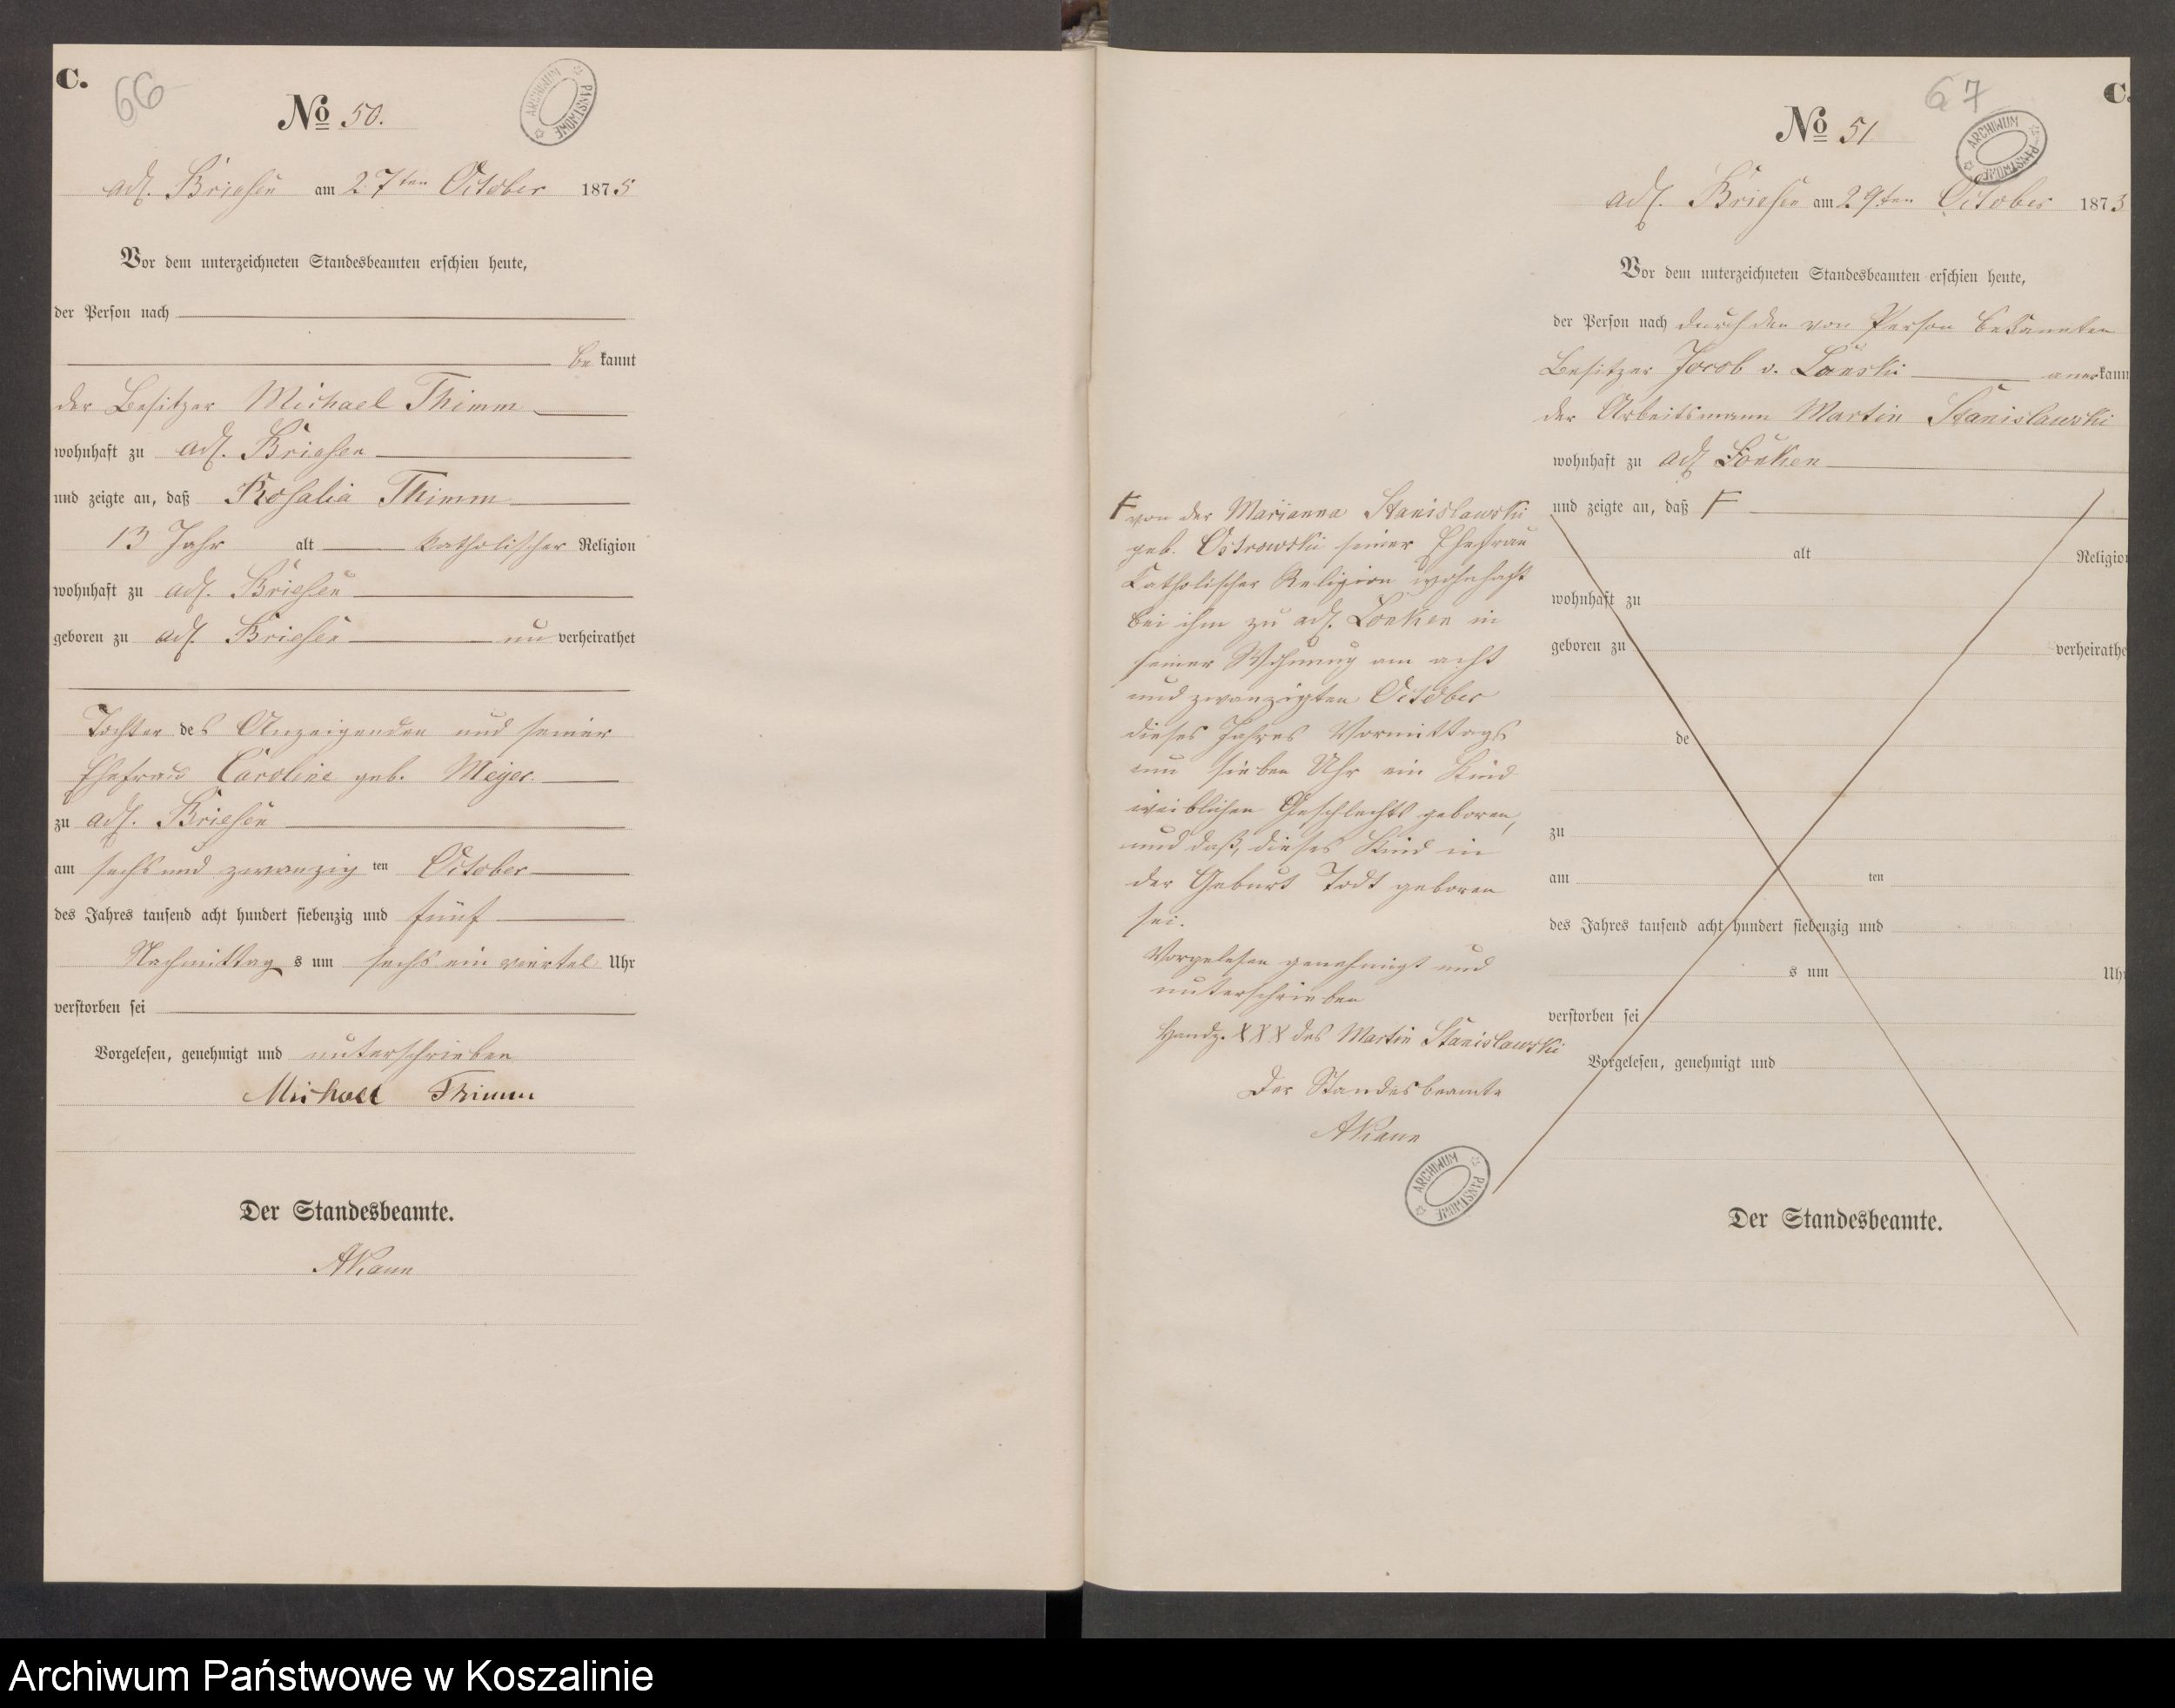 C.
66
No 50.
ARCHIWUM PAŃSTWOWE
adl. Briesen am 27ten October 1875
Vor dem unterzeichneten Standesbeamten erschien heute,
der Person nach
be kannt
der Besitzer Michael Thimm
wohnhaft zu adl. Briesen
und zeigte an, daß Rosalia Thimm
13 Jahr alt katholischer Religion
wohnhaft zu adl. Briesen
geboren zu adl. Briesen un verheirathet
Tochter des Anzeigenden und seiner
Ehefrau Caroline geb. Meyer
zu adl. Briesen
am sechs und zwanzig ten October
des Jahres tausend acht hundert siebenzig und fünf
Nachmittag s um sechs ein viertel Uhr
verstorben sei
Vorgelesen, genehmigt und unterschrieben
Michael Thimm
Der Standesbeamte.
67
C.
No 51
ARCHIWUM PAŃSTWOWE
adl. Briesen am 29ten October 1875
Vor dem unterzeichneten Standesbeamten erschien heute,
der Person nach durch den von Person bekannten
Besitzer Jacob v. aner kann
der Arbeitsmann Martin Stanislawski
wohnhaft zu adl. Lonken
und zeigte an, daß F
alt Religio
wohnhaft zu
geboren zu verheirathe
de
zu
am ten
des Jahres tausend acht hundert siebenzig und
s um Uh
verstorben sei
Vorgelesen, genehmigt und
Der Standesbeamte.
F von der Marianna Stanislawski
geb. Ostrowski seiner Ehefrau
katholischer Religion wohnhaft
bei ihm zu adl. Lonken in
seiner Wohnung am acht
und zwanzigten October
dieses Jahres Vormittags
um sieben Uhr ein Kind
weiblichen Geschlechts geboren,
und daß dieses Kind in
der Geburt todt geboren
sei.
Vorgelesen genehmigt und
unterschrieben
Handz. XXX des Martin Stanislawski
Der Standesbeamte
ARCHIWUM PAŃSTWOWE
Archiwum Państwowe w Koszalinie